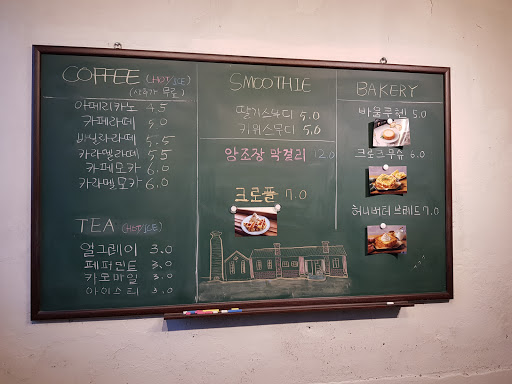 COFFEE (HOT/ICE)
(샷추가 무료)
아메리카노 4.5
카페라떼 5.0
바닐라라떼 5.5
카라멜라떼 5.5
카페모카 6.0
카라멜모카 6.0
TEA (HOT/ICE)
얼그레이 3.0
페퍼민트 3.0
카모마일 3.0
아이스티 3.0
SMOOTHIE
딸기스무디 5.0
키위스무디 5.0
양조장 막걸리 12.0
크로플 7.0
BAKERY
바움쿠헨 5.0
크로크무슈 6.0
허니버터브레드 7.0